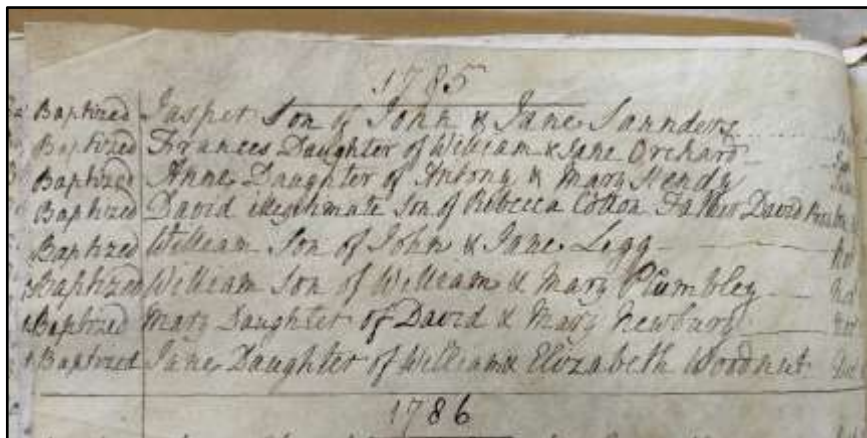 1785
Baptized Jasper Son of John & Jane Saunders
Baptized Frances Daughter of William & Jane Orchard
Baptized Anne Daughter of Antony & Mary Hendy
Baptized David illegitimate Son of Rebecca Cotton Father David
Baptized William Son of John & Jane Legg
Baptized William Son of William & Mary Plumbley
Baptized Mary Daughter of David & Mary Newbury
Baptized Jane Daughter of William & Elizabeth Woodnut
1786